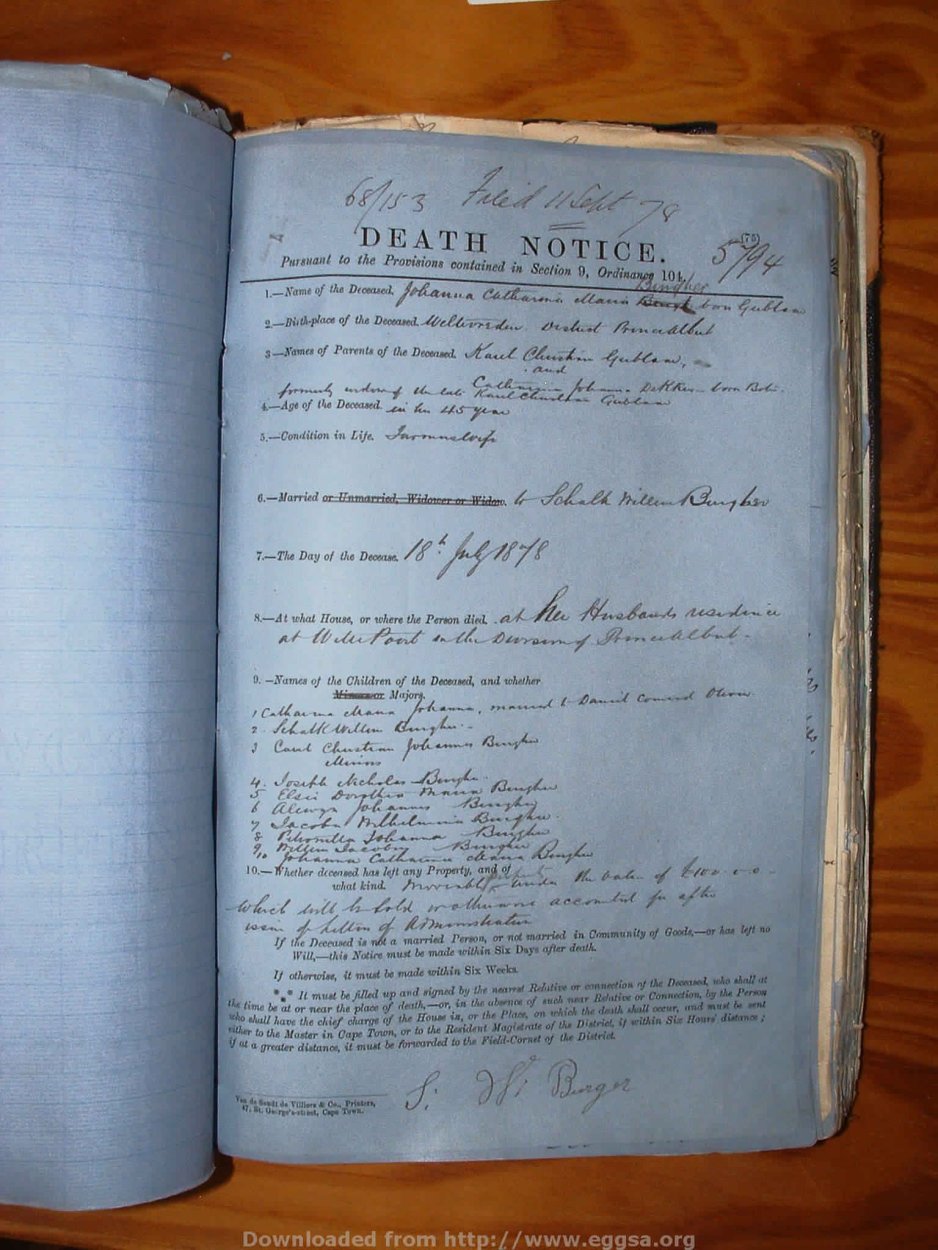 68/153 Filed 11 Sept 78
DEATH NOTICE. (75) 5794
Pursuant to the Provisions contained in Section 9, Ordinance 104.
Burgher
1.—Name of the Deceased. Johanna Catharina Maria born
2.—Birth-place of the Deceased. District Prince Albert
3.—Names of Parents of the Deceased. Karel Christian
and
formerly widow of the late Johanna born
4.—Age of the Deceased. in her 45 year
5.—Condition in Life.
6.—Married or Unmarried, Widower or Widow. to Schalk Willem Burgher
7.—The Day of the Decease. 18th July 1878
8.—At what House, or where the Person died. at her Husbands residence
at in the Division of Prince Albert.
9.—Names of the Children of the Deceased, and whether
Minors or Majors.
1 Catharina Maria Johanna, married to Daniel
2 Schalk Willem Burgher
3 Christian Johannes Burgher
Minors
4. Joseph Nicholas Burgher
5 Elsie Dorothea Maria Burgher
6 Johannes Burgher
7 Jacoba Wilhelmina Burgher
8 Petronella Johanna Burgher
9, Willem Jacobus Burgher
10 Johanna Catharina Maria Burgher
10.—Whether deceased has left any Property, and of
what kind. Moveable under the value of £100-0-0
which will be sold or otherwise accounted for after
issue of Letters of Administration
If the Deceased is not a married Person, or not married in Community of Goods,—or has left no
Will,—this Notice must be made within Six Days after death.
If otherwise, it must be made within Six Weeks.
*** It must be filled up and signed by the nearest Relative or connection of the Deceased, who shall at
the time be at or near the place of death,—or, in the absence of such near Relative or Connection, by the Person
who shall have the chief charge of the House in, or the Place, on which the death shall occur, and must be sent
either to the Master in Cape Town, or to the Resident Magistrate of the District, if within Six Hours' distance;
if at a greater distance, it must be forwarded to the Field-Cornet of the District.
S: W: Burger
Van de Sandt de Villiers & Co., Printers,
47, St. George's-street, Cape Town.
Downloaded from http://www.eggsa.org